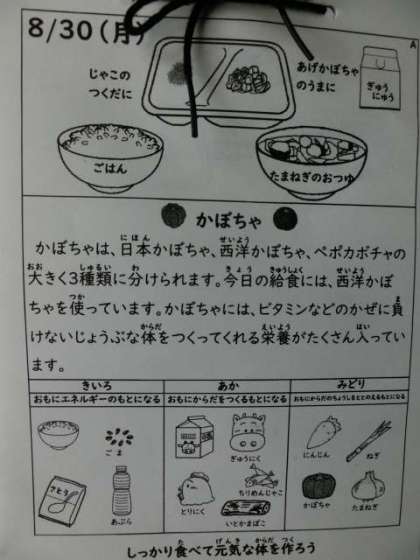 8/30(月)
A
じゃこの
つくだに
あげかぼちゃ
のうまに
ぎゅう
にゅう
ごはん
たまねぎのおつゆ
かぼちゃ
かぼちゃは、日本かぼちゃ、西洋かぼちゃ、ペポカボチャの
大きく3種類に分けられます。今日の給食には、西洋かぼ
ちゃを使っています。かぼちゃには、ビタミンなどのかぜに負
けないじょうぶな体をつくってくれる栄養がたくさん入ってい
ます。
きいろ
あか
みどり
おもにエネルギーのもとになる
おもにからだをつくるもとになる
おもにからだのちょうしをととのえるもとになる
ごま
ぎゅうにく
にんじん
ねぎ
さとう
あぶら
とりにく
ちりめんじゃこ
いとかまぼこ
かぼちゃ
たまねぎ
しっかり食べて元気な体を作ろう